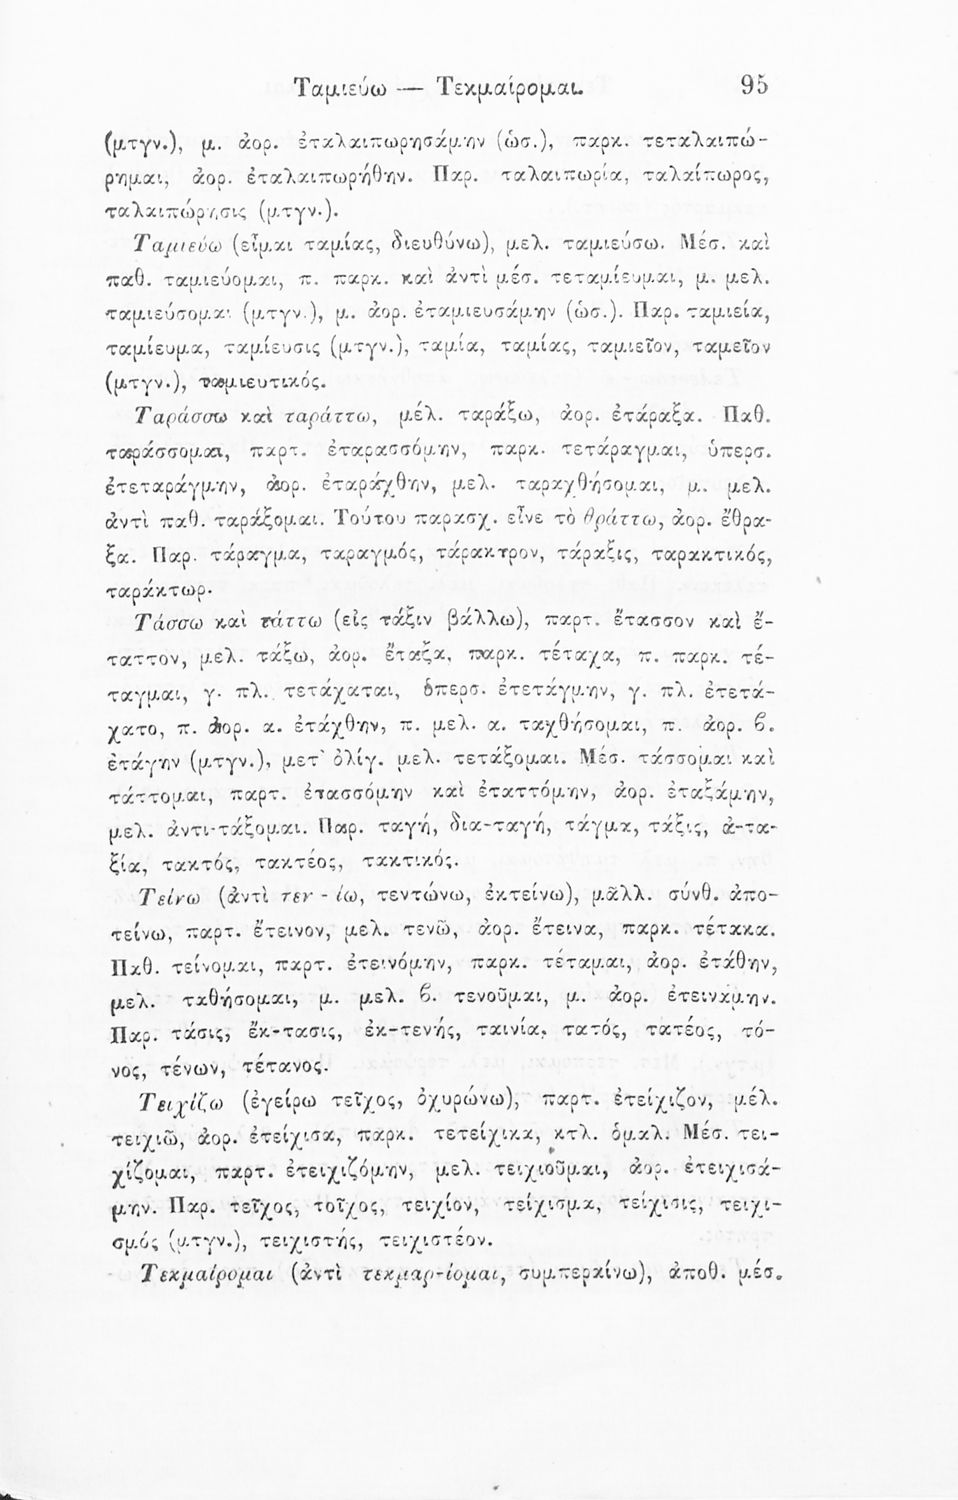 Ταμιεύω — Τεκμαίρομαι. 95
(μτγν.), μ. ἀορ. ἐταλαιπωρησάμην (ὡσ.), παρκ. τεταλαιπώ-
ρημαι, ἀορ. ἐταλαιπωρήθην. Παρ. ταλαιπωρία, ταλαίπωρος,
ταλαιπώρησις (μτγν.).
Ταμιεύω (εἶμαι ταμίας, διευθύνω), μελ. ταμιεύσω. Μέσ. καὶ
παθ. ταμιεύομαι, π. παρκ. καὶ ἀντὶ μέσ. τεταμίευμαι, μ. μελ.
ταμιεύσομαι (μτγν.), μ. ἀορ. ἐταμιευσάμην (ὡσ.). Παρ. ταμιεία,
ταμίευμα, ταμίευσις (μτγν.), ταμία, ταμίας, ταμιεῖον, ταμεῖον
(μτγν.), ταμιευτικός.
Ταράσσω καὶ ταράττω, μέλ. ταράξω, ἀορ. ἐτάραξα. Παθ.
ταράσσομαι, παρτ. ἐταρασσόμην, παρκ. τετάραγμαι, ὑπερσ.
ἐτεταράγμην, ἀορ. ἐταράχθην, μελ. ταραχθήσομαι, μ. μελ.
ἀντὶ παθ. ταράξομαι. Τούτου παρασχ. εἶνε τὸ θράττω, ἀορ. ἔθρα-
ξα. Παρ. τάραγμα, ταραγμός, τάρακτρον, τάραξις, ταρακτικός,
ταράκτωρ.
Τάσσω καὶ τάττω (εἰς τάξιν βάλλω), παρτ. ἔτασσον καὶ ἔ-
ταττον, μελ. τάξω, ἀορ. ἔταξα, παρκ. τέταχα, π. παρκ. τέ-
ταγμαι, γ. πλ. τετάχαται, ὑπερσ. ἐτετάγμην, γ. πλ. ἐτετά-
χατο, π. ἀορ. α. ἐτάχθην, π. μελ. α. ταχθήσομαι, π. ἀορ. β.
ἐτάγην (μτγν.), μετ' ὀλίγ. μελ. τετάξομαι. Μέσ. τάσσομαι καὶ
τάττομαι, παρτ. ἐτασσόμην καὶ ἐταττόμην, ἀορ. ἐταξάμην,
μελ. ἀντι-τάξομαι. Παρ. ταγή, δια-ταγή, τάγμα, τάξις, ἀ-τα-
ξία, τακτός, τακτέος, τακτικός.
Τείνω (ἀντὶ τεν - ίω, τεντώνω, ἐκτείνω), μᾶλλ. σύνθ. ἀπο-
τείνω, παρτ. ἔτεινον, μελ. τενῶ, ἀορ. ἔτεινα, παρκ. τέτακα.
Παθ. τείνομαι, παρτ. ἐτεινόμην, παρκ. τέταμαι, ἀορ. ἐτάθην,
μελ. ταθήσομαι, μ. μελ. β. τενοῦμαι, μ. ἀορ. ἐτεινάμην.
Παρ. τάσις, ἔκ-τασις, ἐκ-τενής, ταινία, τατός, τατέος, τό-
νος, τένων, τέτανος.
Τειχίζω (ἐγείρω τεῖχος, ὀχυρώνω), παρτ. ἐτείχιζον, μέλ.
τειχιῶ, ἀορ. ἐτείχισα, παρκ. τετείχικα, κτλ. ὁμαλ. Μέσ. τει-
χίζομαι, παρτ. ἐτειχιζόμην, μελ. τειχιοῦμαι, ἀορ. ἐτειχισά-
μην. Παρ. τεῖχος, τοῖχος, τειχίον, τείχισμα, τείχισις, τειχι-
σμός (μτγν.), τειχιστής, τειχιστέον.
Τεκμαίρομαι (ἀντὶ τεκμαρ-ίομαι, συμπεραίνω), ἀποθ. μέσ.